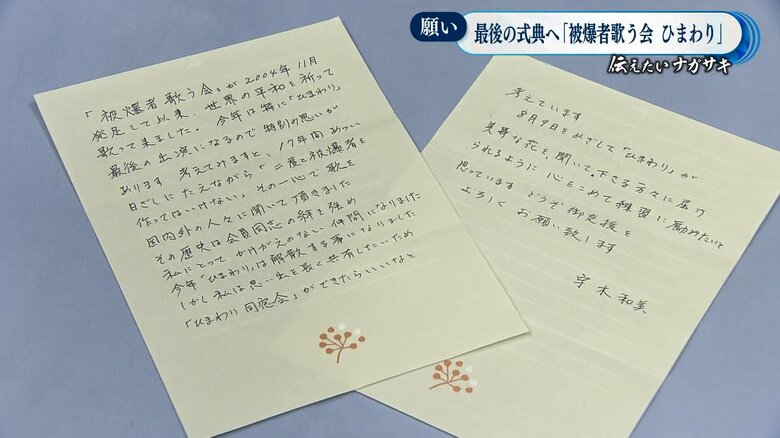 願い
最後の式典へ「被爆者歌う会 ひまわり」
伝えたいナガサキ
「被爆者歌う会」が2004年11月
発足して以来、世界の平和を祈って
歌って来ました。今年は特に「ひまわり」
最後の出演になるので特別の思いが
あります 考えてみますと、17年間 あつい
日ざしにたえながら「二度と被爆者を
作ってはいけない」その一心で歌を
国内外の人々に聞いて頂きました
その歴史は会員同志の絆を強め
私にとって かけがえのない仲間になりました
今年「ひまわり」は解散する事になりました
しかし私は思い出を長く共有したいため
「ひまわり同窓会」ができたらいいなと
考えています
8月9日をめざして「ひまわり」が
美事な花を開いて、下さる方々に届け
られるように 心をこめて練習に励みたいと
思っています どうぞ御支援を
よろしく お願い致します
宇木和美